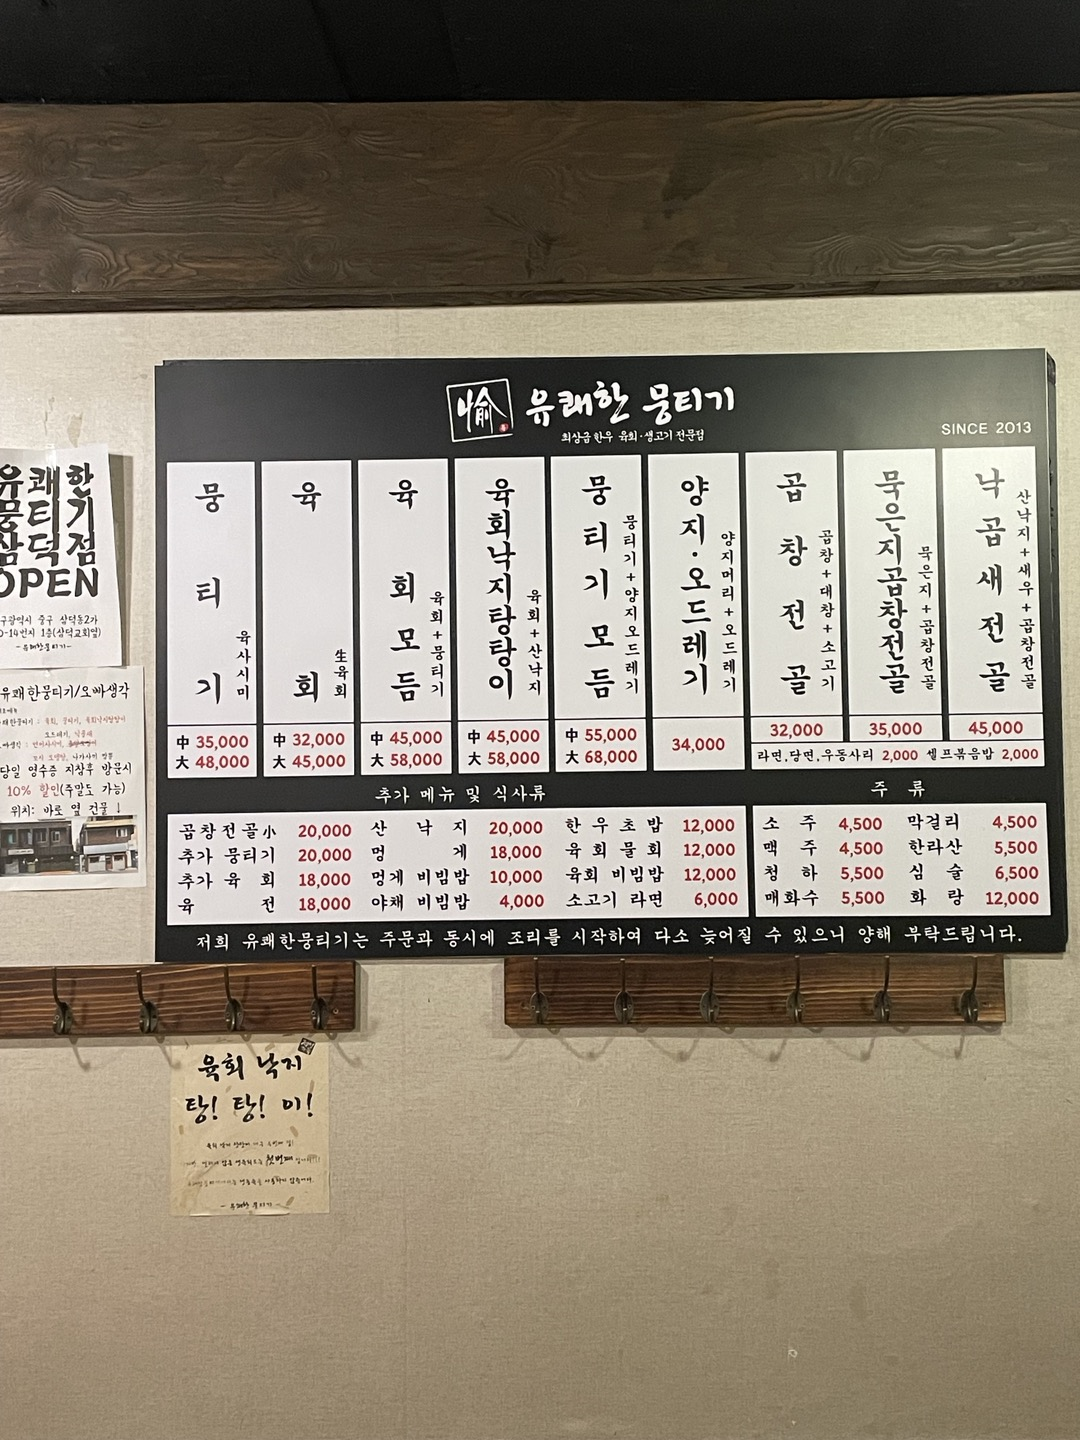 愉 유쾌한 뭉티기
최상급 한우 육회·생고기 전문점
SINCE 2013
뭉티기
육사시미
中 35,000
大 48,000
육회
生육회
中 32,000
大 45,000
육회모듬
육회+뭉티기
中 45,000
大 58,000
육회낙지탕탕이
육회+산낙지
中 45,000
大 58,000
뭉티기모듬
뭉티기+양지오드레기
中 55,000
大 68,000
양지·오드레기
양지머리+오드레기
34,000
곱창전골
곱창+대창+소고기
32,000
묵은지곱창전골
묵은지+곱창전골
35,000
낙곱새전골
산낙지+새우+곱창전골
45,000
라면,당면,우동사리 2,000 셀프볶음밥 2,000
추가 메뉴 및 식사류
곱창전골小 20,000 산낙지 20,000 한우초밥 12,000
추가 뭉티기 20,000 멍게 18,000 육회물회 12,000
추가 육회 18,000 멍게 비빔밥 10,000 육회 비빔밥 12,000
육전 18,000 야채 비빔밥 4,000 소고기 라면 6,000
주류
소주 4,500 막걸리 4,500
맥주 4,500 한라산 5,500
청하 5,500 심술 6,500
매화수 5,500 화랑 12,000
저희 유쾌한뭉티기는 주문과 동시에 조리를 시작하여 다소 늦어질 수 있으니 양해 부탁드립니다.
유쾌한
뭉티기
삼덕점
OPEN
구광역시 중구 삼덕동2가
-14번지 1층(삼덕교회옆)
-유쾌한뭉티기-
유쾌한뭉티기/오빠생각
당일 영수증 지참후 방문시
10% 할인(주말도 가능)
위치: 바로 옆 건물 ↓
육회 낙지
탕! 탕! 이!
첫번째
- 유쾌한 뭉티기 -